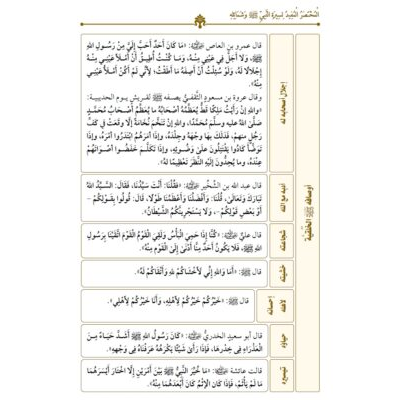 المُخْتَصَرُ المُفِيدُ لِسِيرَةِ النَّبِيِّ ﷺ وَشَمَائِلِهِ
أوصافه ﷺ الخلقية
إجلال أصحابه له
قال عمرو بن العاص رضي الله عنه: «مَا كَانَ أَحَدٌ أَحَبَّ إِلَيَّ مِنْ رَسُولِ اللهِ
ﷺ، وَلَا أَجَلَّ فِي عَيْنِي مِنْهُ، وَمَا كُنْتُ أُطِيقُ أَنْ أَمْلَأَ عَيْنَيَّ مِنْهُ
إِجْلَالًا لَهُ، وَلَوْ سُئِلْتُ أَنْ أَصِفَهُ مَا أَطَقْتُ؛ لِأَنِّي لَمْ أَكُنْ أَمْلَأُ عَيْنَيَّ
مِنْهُ».
وقال عروة بن مسعود الثقفيُّ يصفه ﷺ لقريش يوم الحديبية:
«وَاللهِ إِنْ رَأَيْتُ مَلِكًا قَطُّ يُعَظِّمُهُ أَصْحَابُهُ مَا يُعَظِّمُ أَصْحَابُ مُحَمَّدٍ
صَلَّى اللهُ عليه وسلَّم مُحَمَّدًا، وَاللهِ إِنْ تَنَخَّمَ نُخَامَةً إِلَّا وَقَعَتْ فِي كَفِّ
رَجُلٍ مِنهم، فَدَلَكَ بِهَا وَجْهَهُ وَجِلْدَهُ، وَإِذَا أَمَرَهُمْ ابْتَدَرُوا أَمْرَهُ، وَإِذَا
تَوَضَّأَ كَادُوا يَقْتَتِلُونَ عَلَى وَضُوئِهِ، وَإِذَا تَكَلَّمَ خَفَضُوا أَصْوَاتَهُمْ
عِنْدَهُ، وما يُحِدُّونَ إِلَيْهِ النَّظَرَ تَعْظِيمًا لَهُ».
أدبه مع الله
قال عبد الله بن الشِّخِّير رضي الله عنه: «فَقُلْنَا: أَنْتَ سَيِّدُنَا، فَقَالَ: السَّيِّدُ اللهُ
تَبَارَكَ وَتَعَالَى، قُلْنَا: وَأَفْضَلُنَا وَأَعْظَمُنَا طَوْلًا، قَالَ: قُولُوا بِقَوْلِكُمْ -
أَوْ بَعْضِ قَوْلِكُمْ -، وَلَا يَسْتَجْرِيَنَّكُمُ الشَّيْطَانُ».
شجاعته
قال علي رضي الله عنه: «كُنَّا إِذَا حَمِيَ الْبَأْسُ وَلَقِيَ الْقَوْمُ الْقَوْمَ اتَّقَيْنَا بِرَسُولِ
اللهِ ﷺ، فَلَا يَكُونُ أَحَدٌ مِنَّا أَدْنَى إِلَى الْقَوْمِ مِنْهُ».
خشيته
قال ﷺ: «أَمَا وَاللهِ إِنِّي لَأَخْشَاكُمْ لِلهِ وَأَتْقَاكُمْ لَهُ».
إحسانه لأهله
قال ﷺ: «خَيْرُكُمْ خَيْرُكُمْ لِأَهْلِهِ، وَأَنَا خَيْرُكُمْ لِأَهْلِي».
حياؤه
قال أبو سعيد الخدريُّ رضي الله عنه: «كَانَ رَسُولُ اللهِ ﷺ أَشَدَّ حَيَاءً مِنَ
الْعَذْرَاءِ فِي خِدْرِهَا، فَإِذَا رَأَى شَيْئًا يَكْرَهُهُ عَرَفْنَاهُ فِي وَجْهِهِ».
تيسيره
قالت عائشة رضي الله عنها: «مَا خُيِّرَ النَّبِيُّ ﷺ بَيْنَ أَمْرَيْنِ إِلَّا اخْتَارَ أَيْسَرَهُمَا
مَا لَمْ يَأْثَمْ، فَإِذَا كَانَ الْإِثْمُ كَانَ أَبْعَدَهُمَا مِنْهُ».